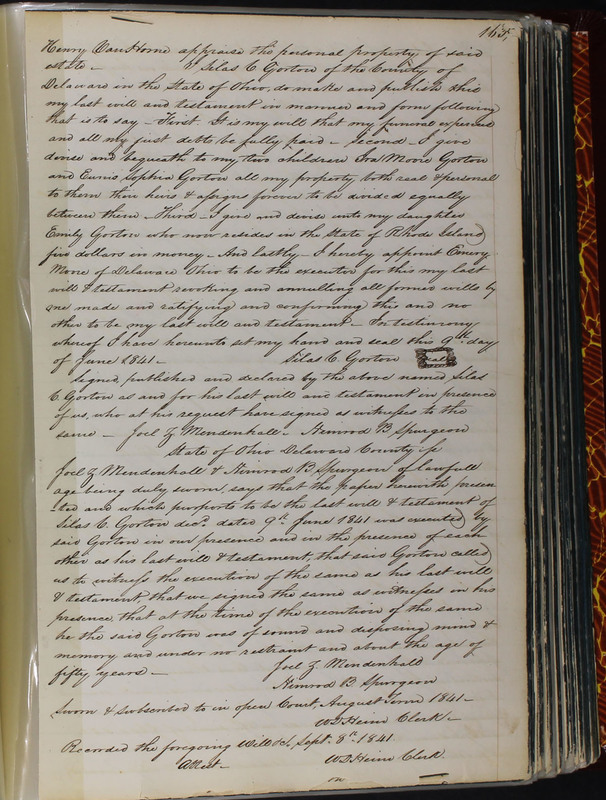 165,
Henry VanHorne appraise the personal property of said
estate – I Silas C. Gorton of the County of
Delaware in the State of Ohio, do make and publish this
my last will and testament in manner and form following
that is to say – First It is my will that my funeral expenses
and all my just debts be fully paid – Second – I give
devise and bequeath to my two children Ira Moore Gorton
and Eunis Sophia Gorton all my property both real & personal
to them their heirs & assigns forever to be divided equally
between them – Third – I give and devise unto my daughter
Emily Gorton who now resides in the State of Rhode Island
five dollars in money – And lastly – I hereby appoint Emery
Moore of Delaware Ohio to be the executor for this my last
will & testament revoking and annulling all former wills by
me made and ratifying and confirming this and no
other to be my last will and testament – In testimony
whereof I have hereunto set my hand and seal this 9th day
of June 1841 – Silas C. Gorton seal
Signed, published and declared by the above named Silas
C. Gorton as and for his last will and testament in presence
of us, who at his request have signed as witnesses to the
same – Joel Z Mendenhall – Nimrod B. Spurgeon
State of Ohio Delaware County ss
Joel Z Mendenhall & Nimrod B. Spurgeon of lawfull
age being duly sworn, says that the paper herewith presen
-ted and which purports to be the last will & testament of
Silas C. Gorton decd dated 9th June 1841 was executed by
said Gorton in our presence and in the presence of each
other as his last will & testament, that said Gorton called
us to witness the execution of the same as his last will
& testament, that we signed the same as witnesses in his
presence, that at the time of the execution of the same
he the said Gorton was of sound and disposing mind &
memory and under no restraint and about the age of
fifty years – Joel Z Mendenhall
Nimrod B Spurgeon
Sworn & subscribed to in open Court August Term 1841 –
W.D. Heim Clerk –
Recorded the foregoing Will &c, Sept. 8th 1841.
Attest – W.D. Heim Clerk.